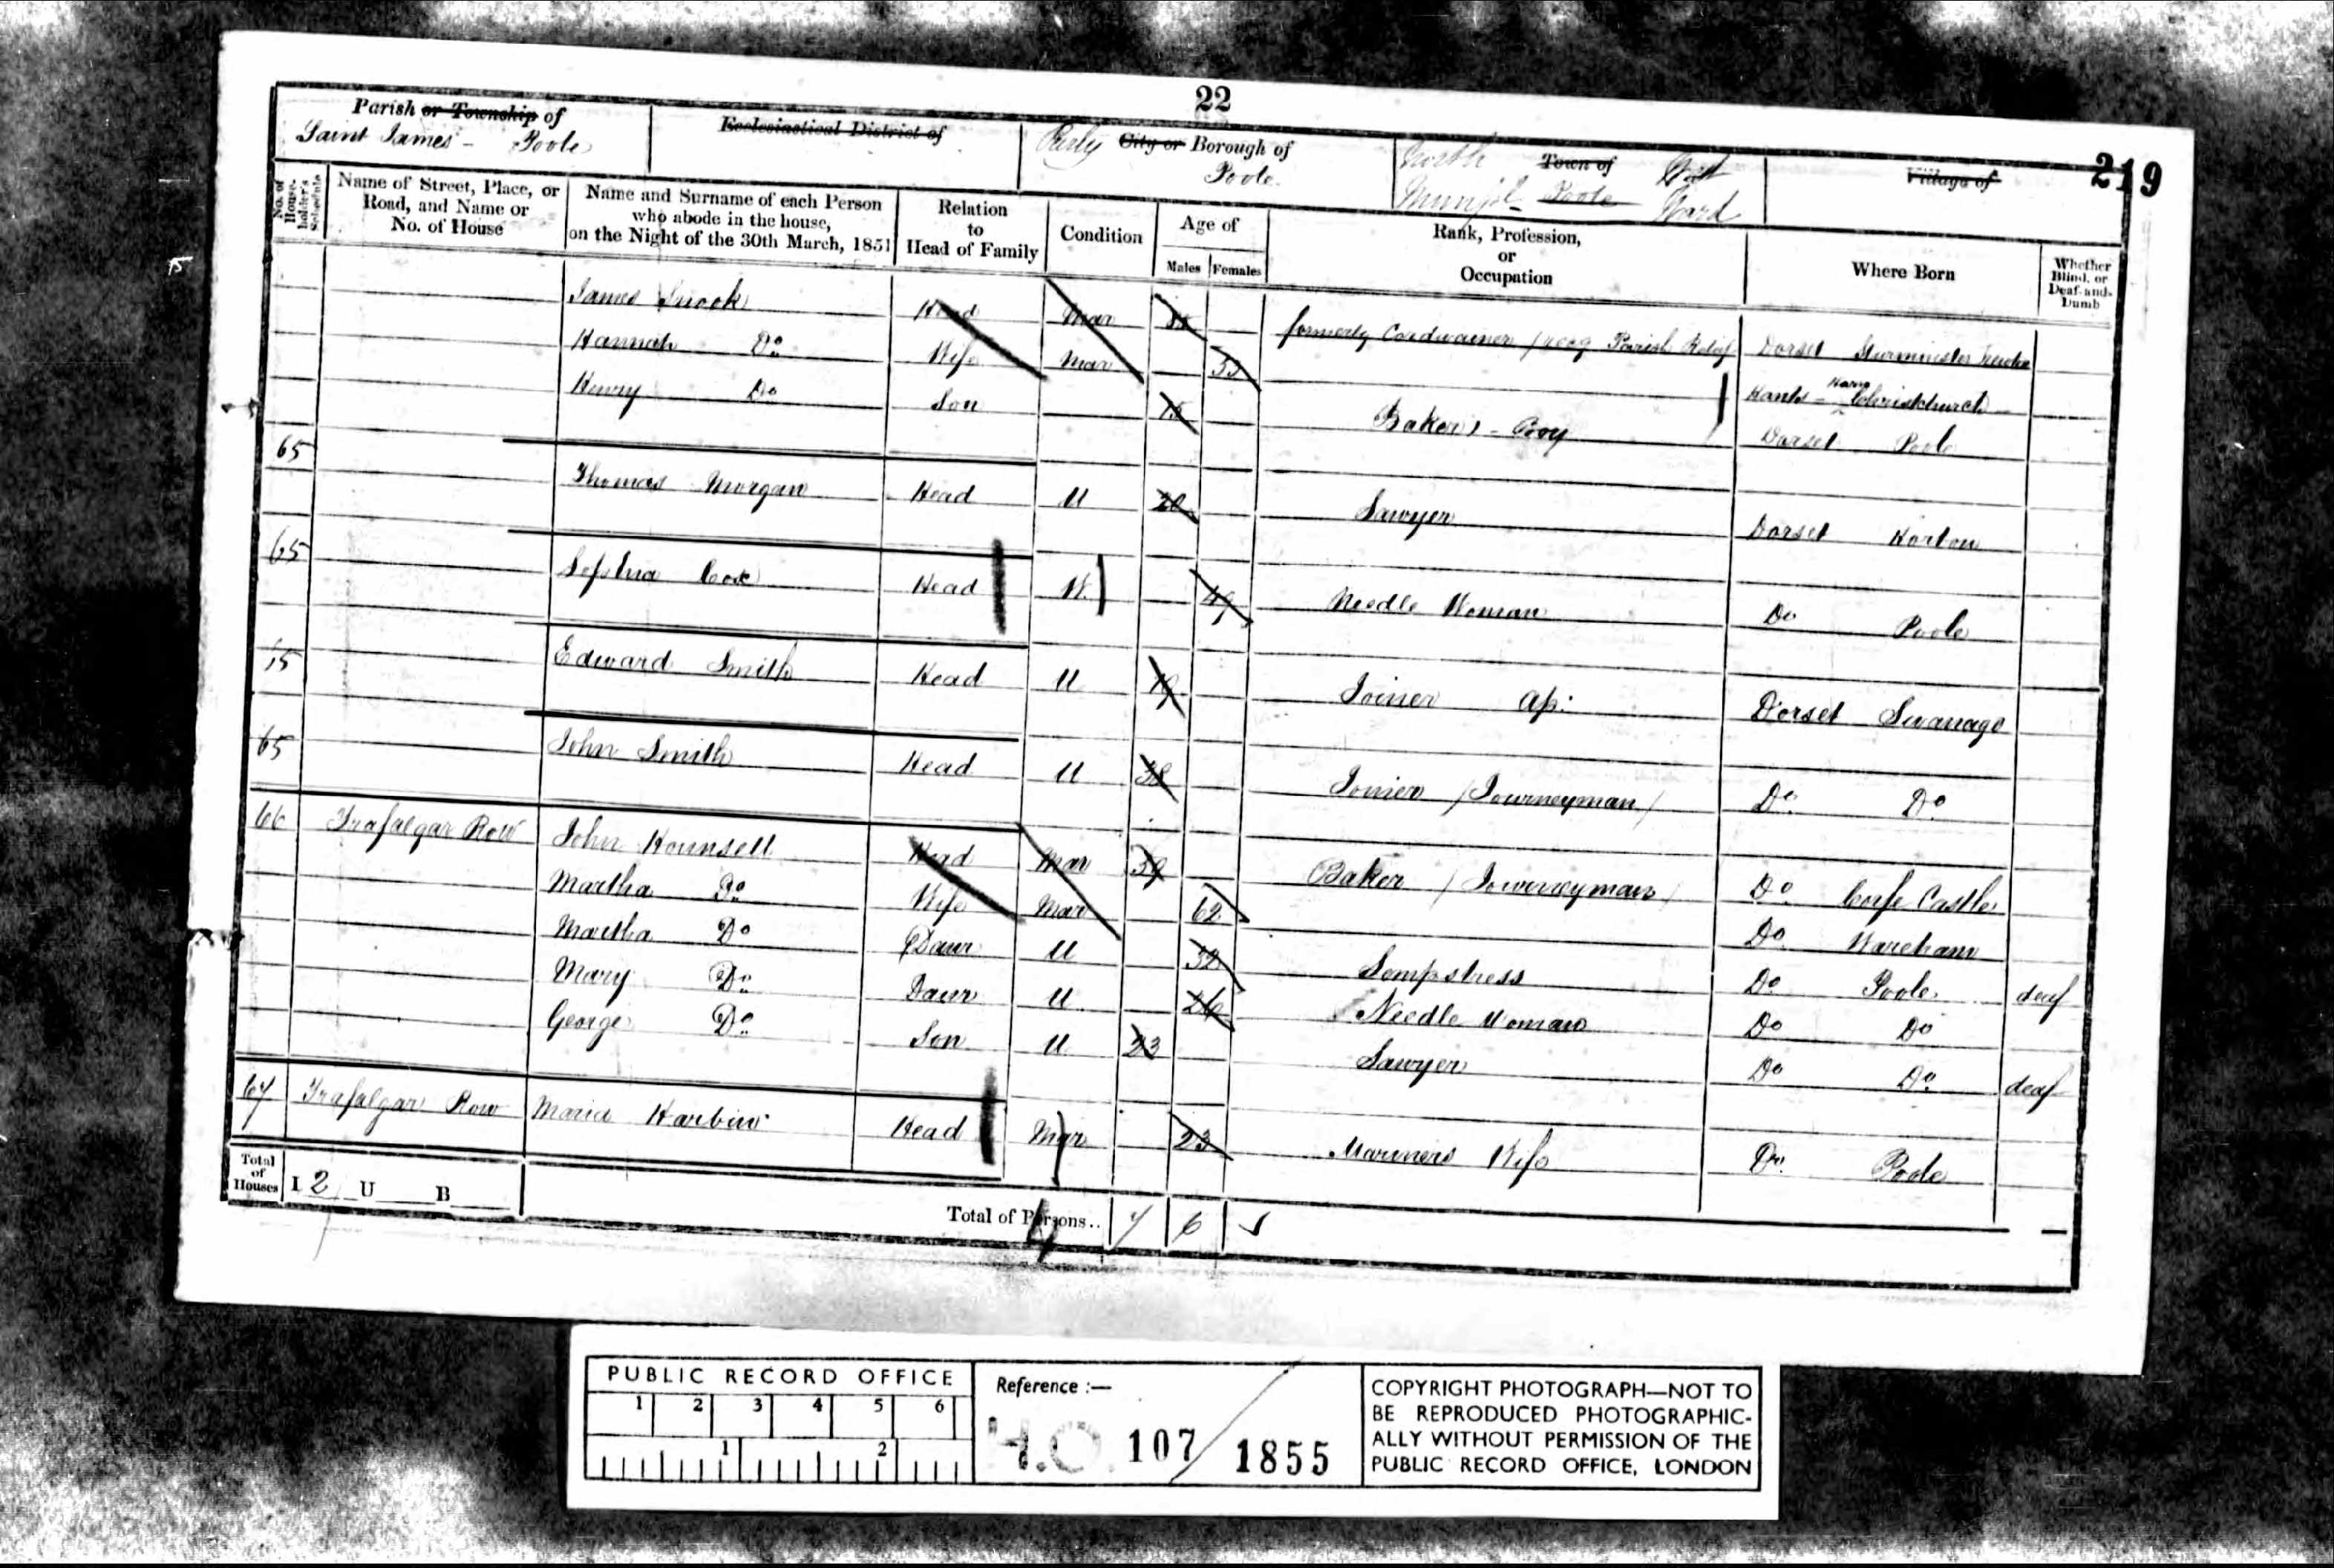 22
219
Parish or Township of
Saint James - Poole
Ecclesiastical District of
City or Borough of
Poole
North Town of West
Municpl Poole Ward
Village of
No. of House-holder's Schedule
Name of Street, Place, or Road, and Name or No. of House
Name and Surname of each Person who abode in the house, on the Night of the 30th March, 1851
Relation to Head of Family
Condition
Age of
Males Females
Rank, Profession, or Occupation
Where Born
Whether Blind, or Deaf-and-Dumb
James Snook Head Mar formerly Cordwainer Parish Relief Dorset Sturminster Newton
Hannah Do Wife Mar 53 Hants - Christchurch
Henry Do Son 15 Baker's - Boy Dorset Poole
65 Thomas Morgan Head U 20 Sawyer Dorset Horton
65 Cox Head W 49 Needle Woman Do Poole
65 Edward Smith Head U 19 Joiner Ap: Dorset Swanage
65 John Smith Head U 38 Joiner /Journeyman/ Do Do
66 Trafalgar Row John Hounsell Head Mar 59 Baker /Journeyman/ Do Corfe Castle
Martha Do Wife Mar 62 Do Wareham
Martha Do Daur U 32 Sempstress Do Poole deaf
Mary Do Daur U 26 Needle Woman Do Do
George Do Son U 23 Sawyer Do Do deaf
67 Trafalgar Row Maria Harbin Head Mar 23 Mariners Wife Do Poole
Total of Houses I 2 U B
Total of Persons.. 7 6
PUBLIC RECORD OFFICE
1 2 3 4 5 6
1 2
Reference :—
H.O. 107 / 1855
COPYRIGHT PHOTOGRAPH—NOT TO
BE REPRODUCED PHOTOGRAPHIC-
ALLY WITHOUT PERMISSION OF THE
PUBLIC RECORD OFFICE, LONDON